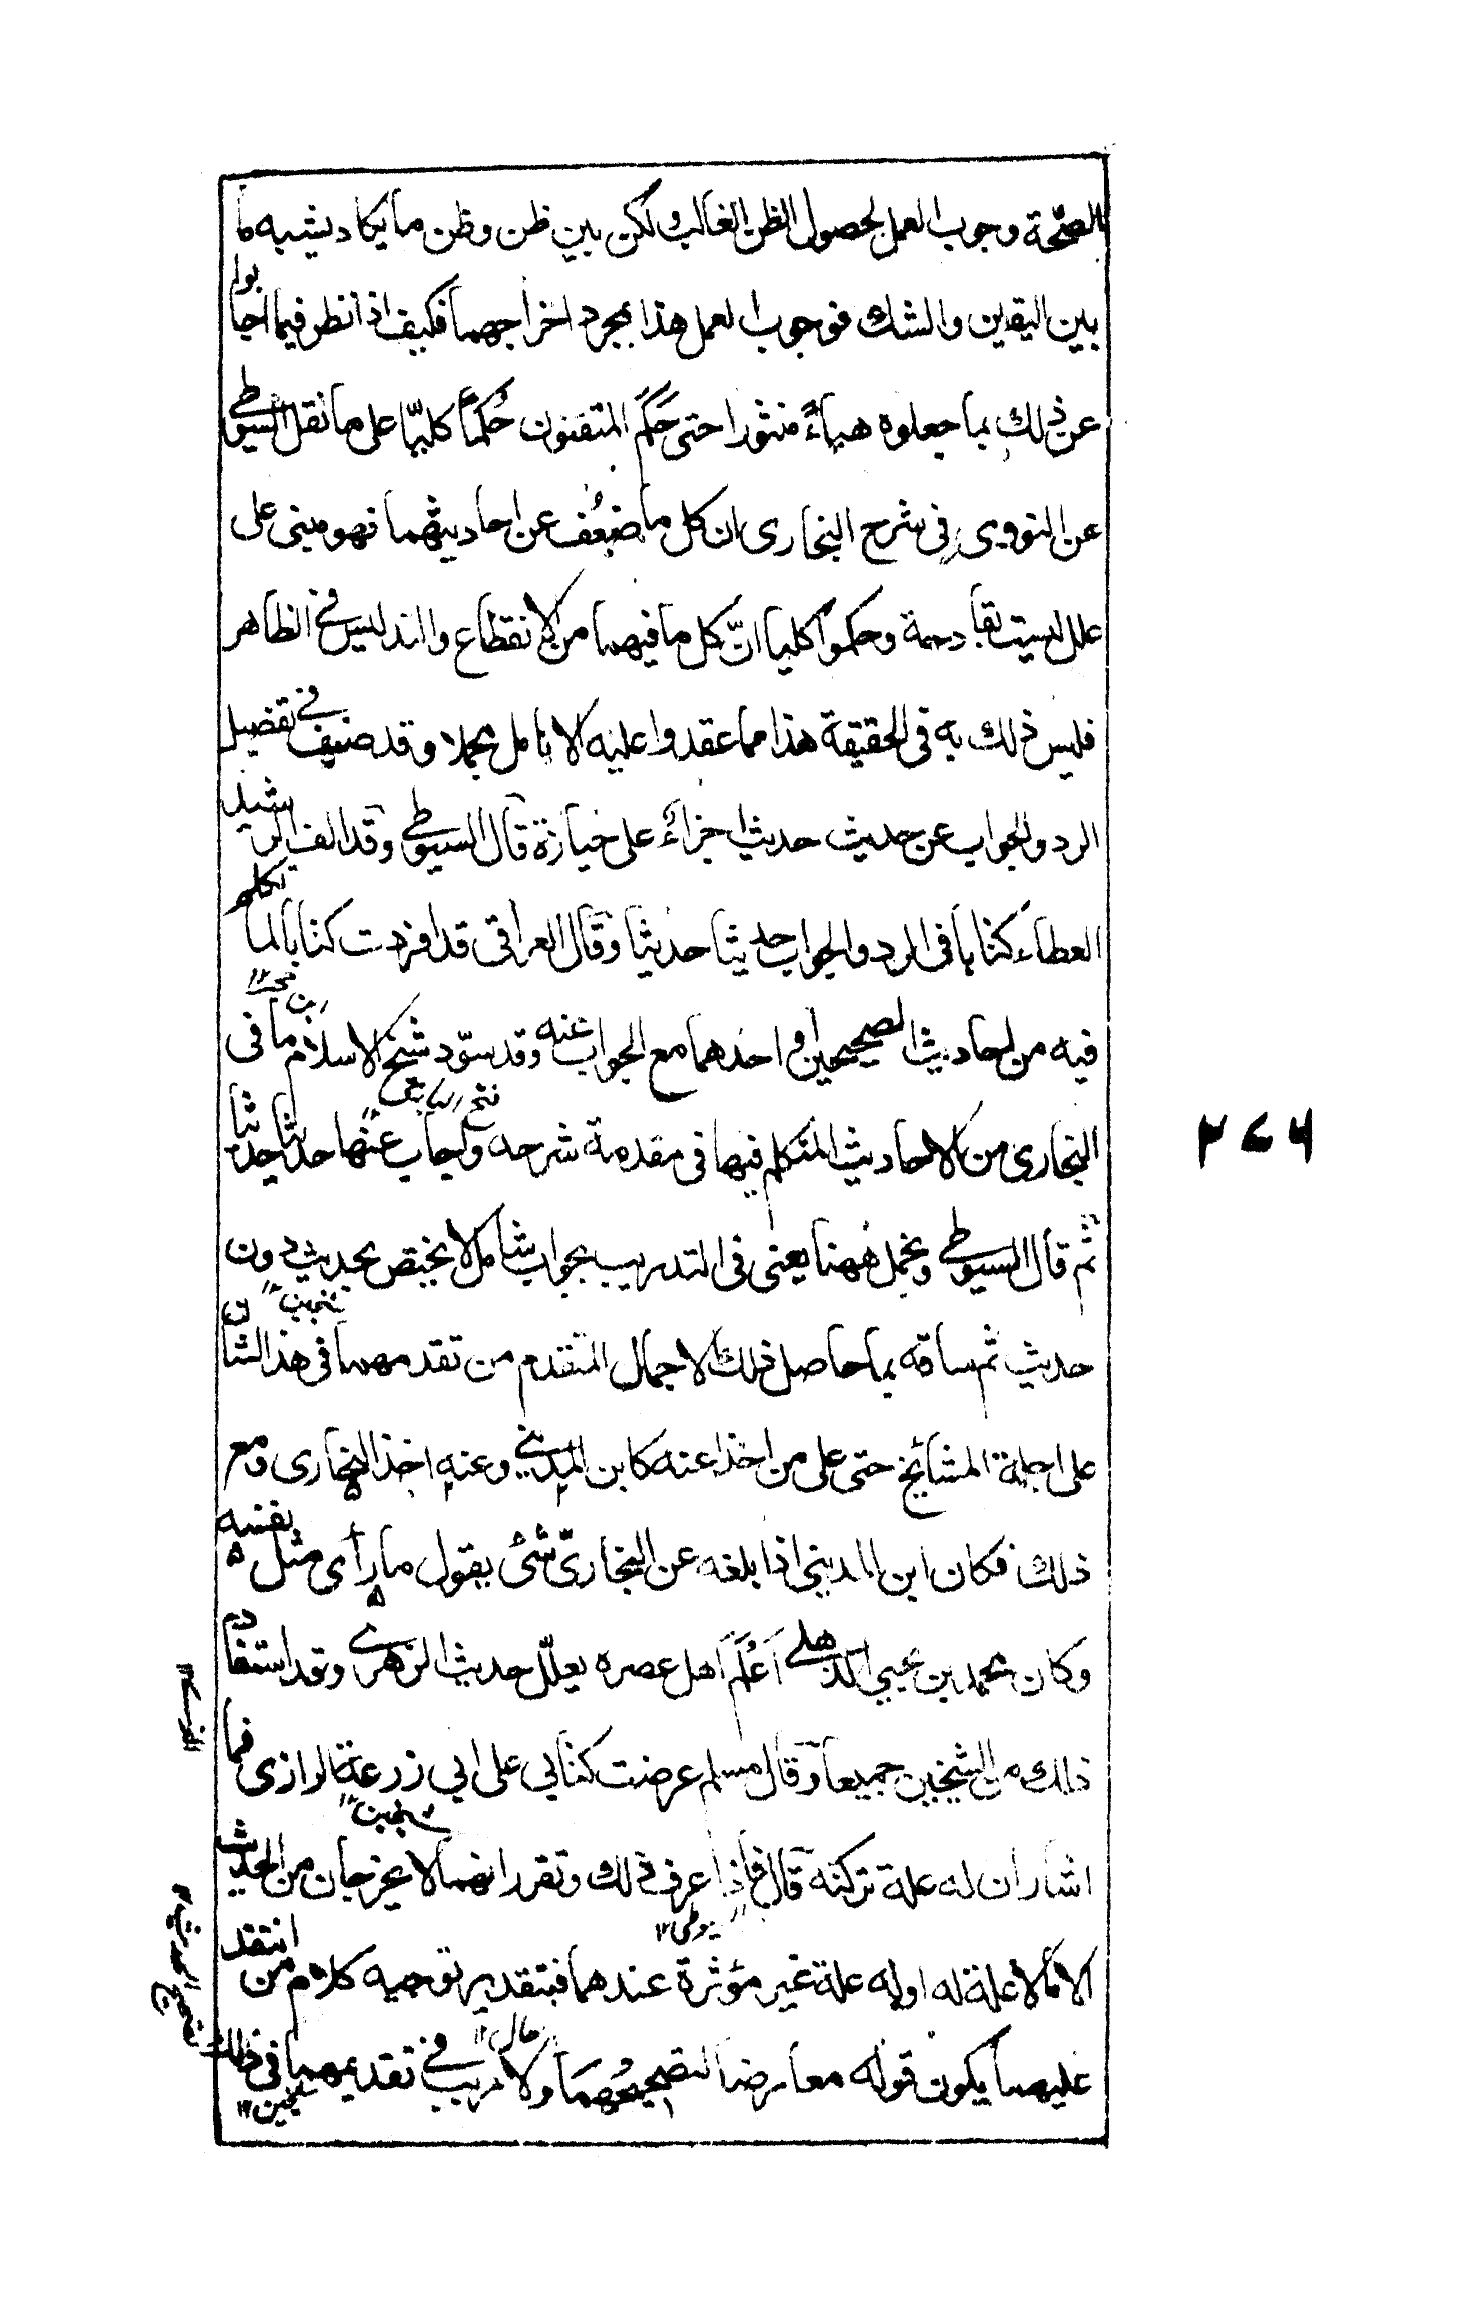 بالصحّة وجوب العمل لحصول الظن الغالب ولكن بين ظن وظن ما يكاد يشبه ما
بين اليقين والشك فوجوب العمل هذا بمجرد اخراجهما فكيف اذا نظر فيما اجابوا
عن ذلك بما جعلوه هباءً منثورا حتى حَكَمَ المتقنون حُكمًا كليّا على ما نقل السيوطي
عن النووي في شرح البخاري ان كل ما ضُعِّف عن احاديثهما فهو مبنى على
علل ليست بقادحة وحكموا كليا انّ كل ما فيهما من الانقطاع والتدليس في الظاهر
فليس ذلك به في الحقيقة هذا مما عقدوا عليه الانامل مجملا وقد صنيف في تفصيل
الرد والجواب عن حديث حديث اجزاءٌ على حيازة قال السيوطي وقد الف الرشيد
العطاء كتابا في الرد والجواب حديثا حديثا وقال العراقي قد افردت كتابا لما تكلم
فيه من احاديث الصحيحين او احدهما مع الجواب عنه وقد سوّد شيخ الاسلام ما في
البخاري من الاحاديث المتكلم فيها في مقدمة شرحه واجاب عنها حديثا حديثا
فتح الباري
ثم قال السيوطي ونجمل ههنا يعني في التدريب بجواب شامل لا يختص بحديث دون
حديث ثم ساقه بما حاصل ذلك الاجمال المتقدم من تقدمهما في هذا الشان
شيخين ١٢
على اجلة المشائخ حتى على من اخذا عنه كابن المديني وعنه اخذ البخاري ومع
ذلك فكان ابن المديني اذا بلغه عن البخاريّ شئ يقول ما رأى مثل نفسه
وكان محمد بن يحيى الذهلي اَعْلَمَ اَهل عصره بعلّل حديث الزهري وقد استفاد
ذلك من الشيخين جميعا وقال مسلم عرضت كتابي على ابي زرعة الرازي فما
اشار ان له علة تركته قال فاذا عرف ذلك وتقرر انهما لا يخرجان من الحديث
شيخين ١٢
الا ما لا علة له او له علة غير مؤثرة عندهما فبتقدير توجيه كلام من انتقد
سيوطي ١٢
عليهما يكون قوله معارضا لتصحيحهما ولا ريب في تقديمهما في ذلك
حال ١٢
شيخين ١٢
تصحيح الحديث ١٢
٢٧٦